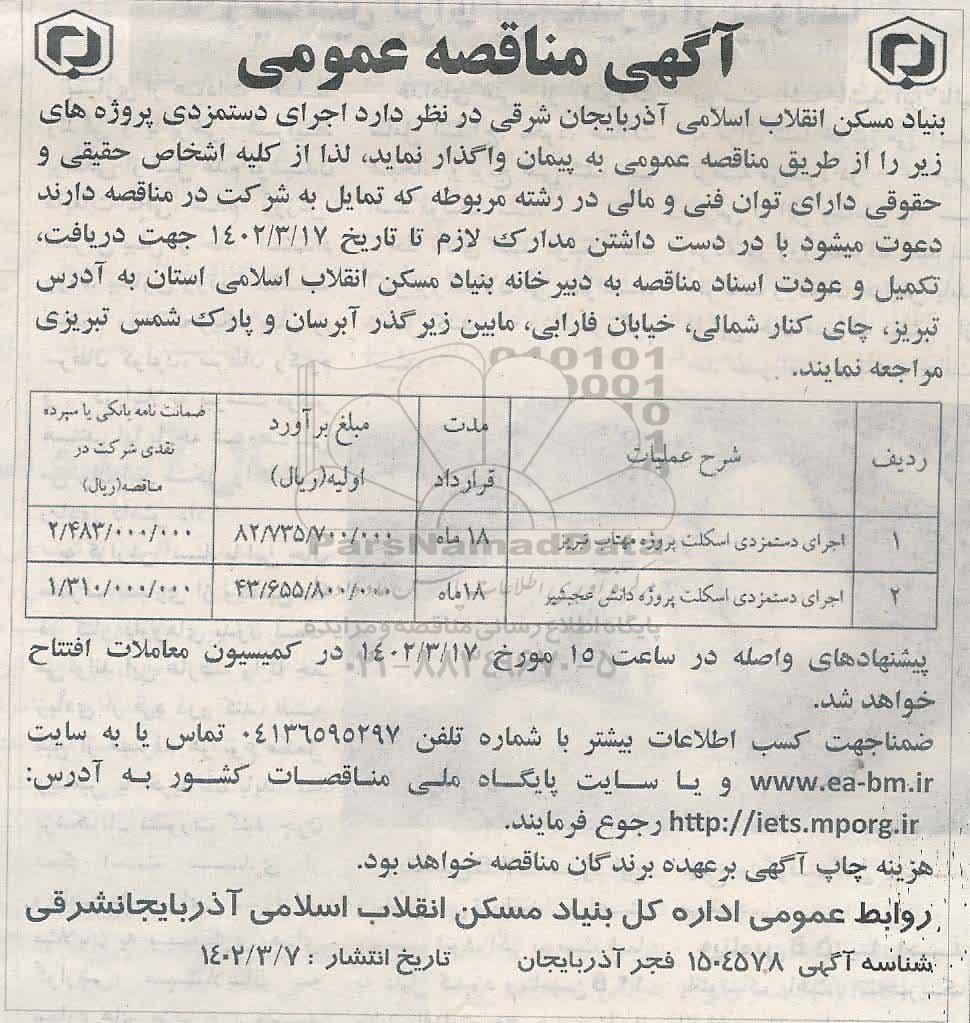 آگهی مناقصه عمومی
بنیاد مسکن انقلاب اسلامی آذربایجان شرقی در نظر دارد اجرای دستمزدی پروژه های
زیر را از طریق مناقصه عمومی به پیمان واگذار نماید، لذا از کلیه اشخاص حقیقی و
حقوقی دارای توان فنی و مالی در رشته مربوطه که تمایل به شرکت در مناقصه دارند
دعوت میشود با در دست داشتن مدارک لازم تا تاریخ ۱۴۰۲/۳/۱۷ جهت دریافت،
تکمیل و عودت اسناد مناقصه به دبیرخانه بنیاد مسکن انقلاب اسلامی استان به آدرس
تبریز، چای کنار شمالی، خیابان فارابی، مابین زیرگذر آبرسان و پارک شمس تبریزی
مراجعه نمایند.
ردیف شرح عملیات مدت قرارداد مبلغ برآورد اولیه(ریال) ضمانت نامه بانکی یا سپرده نقدی شرکت در مناقصه(ریال)
۱ اجرای دستمزدی اسکلت پروژه مهتاب تبریز ۱۸ ماه ۸۲/۷۳۵/۷۰۰/۰۰۰ ۲/۴۸۳/۰۰۰/۰۰۰
۲ اجرای دستمزدی اسکلت پروژه دانش عجبشیر ۱۸ماه ۴۳/۶۵۵/۸۰۰/۰۰۰ ۱/۳۱۰/۰۰۰/۰۰۰
ParsNamadData
پایگاه اطلاع رسانی مناقصه و مزایده
پیشنهادهای واصله در ساعت ۱۵ مورخ ۱۴۰۲/۳/۱۷ در کمیسیون معاملات افتتاح
خواهد شد.
ضمناجهت کسب اطلاعات بیشتر با شماره تلفن ۰۴۱۳۶۵۹۵۲۹۷ تماس یا به سایت
www.ea-bm.ir و یا سایت پایگاه ملی مناقصات کشور به آدرس:
http://iets.mporg.ir رجوع فرمایند.
هزینه چاپ آگهی برعهده برندگان مناقصه خواهد بود.
روابط عمومی اداره کل بنیاد مسکن انقلاب اسلامی آذربایجانشرقی
شناسه آگهی ۱۵۰۴۵۷۸ فجر آذربایجان تاریخ انتشار : ۱۴۰۲/۳/۷